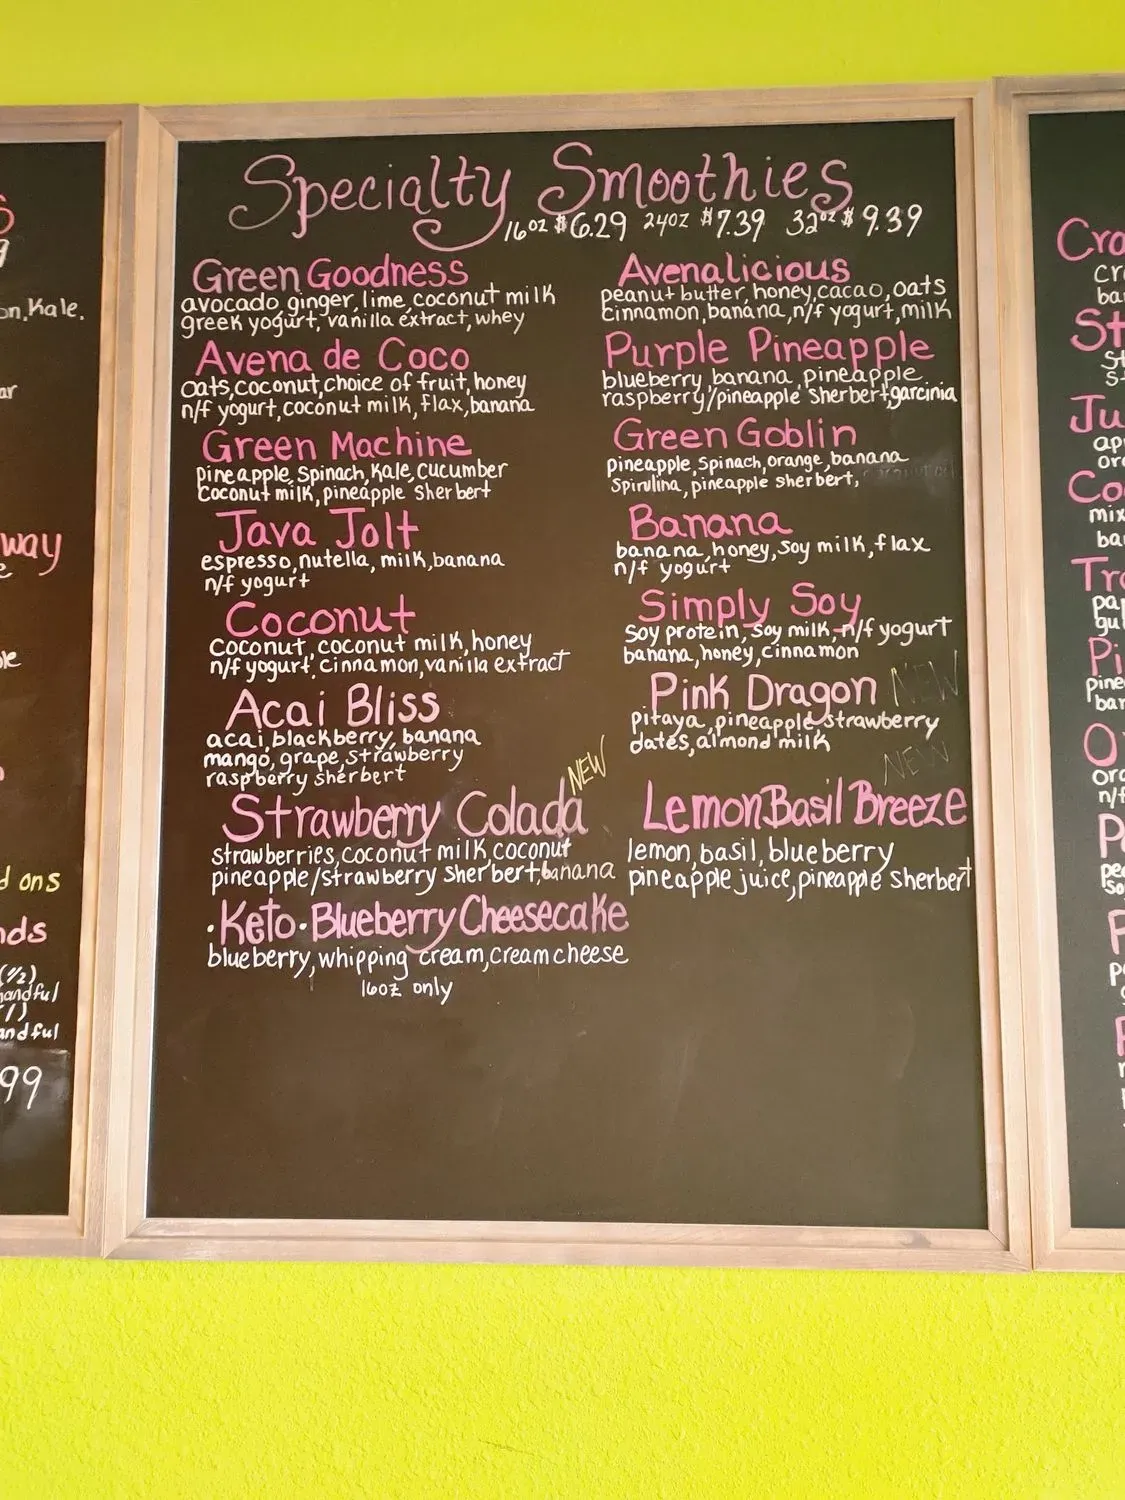 Specialty Smoothies
16oz $6.29 24oz $7.39 32oz $9.39
Green Goodness
avocado, ginger, lime, coconut milk
greek yogurt, vanilla extract, whey
Avena de Coco
oats, coconut, choice of fruit, honey
n/f yogurt, coconut milk, flax, banana
Green Machine
pineapple, spinach, kale, cucumber
coconut milk, pineapple sherbert
Java Jolt
espresso, nutella, milk, banana
n/f yogurt
Coconut
coconut, coconut milk, honey
n/f yogurt, cinnamon, vanilla extract
Acai Bliss
acai, blackberry, banana
mango, grape, strawberry
raspberry sherbert
NEW
Strawberry Colada
strawberries, coconut milk, coconut
pineapple/strawberry sherbert, banana
·Keto·Blueberry Cheesecake
blueberry, whipping cream, cream cheese
16oz only
Avenalicious
peanut butter, honey, cacao, oats
cinnamon, banana, n/f yogurt, milk
Purple Pineapple
blueberry, banana, pineapple
raspberry/pineapple sherbert+garcinia
Green Goblin
pineapple, spinach, orange, banana
spirulina, pineapple sherbert,
Banana
banana, honey, soy milk, flax
n/f yogurt
Simply Soy
soy protein, soy milk, n/f yogurt
banana, honey, cinnamon
Pink Dragon NEW
pitaya, pineapple, strawberry
dates, almond milk
NEW
Lemon Basil Breeze
lemon, basil, blueberry
pineapple juice, pineapple sherbert
Kale,
way
ons
(1/2)
handful
handful
99